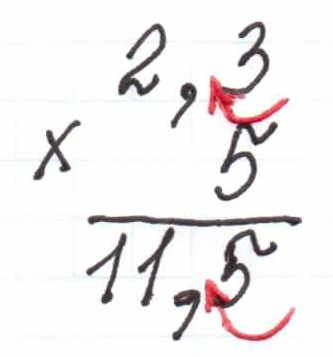 2,3
× 5
11,5